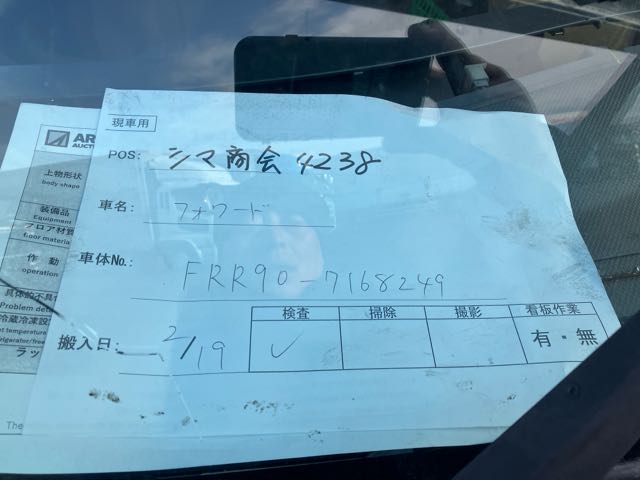 現車用
POS: シマ商会 4238
車名: フォワード
車体No.: FRR90-7168249
搬入日: 2/19
検査 掃除 撮影 看板作業
✓ 有・無
AR
AUCT
上物形状
body shape
装備品
Equipment
フロア材質
floor material
作動
operation
具体的不具合
Problem deta
冷蔵冷凍設
et temperature
rigerator/free
ラッ
The